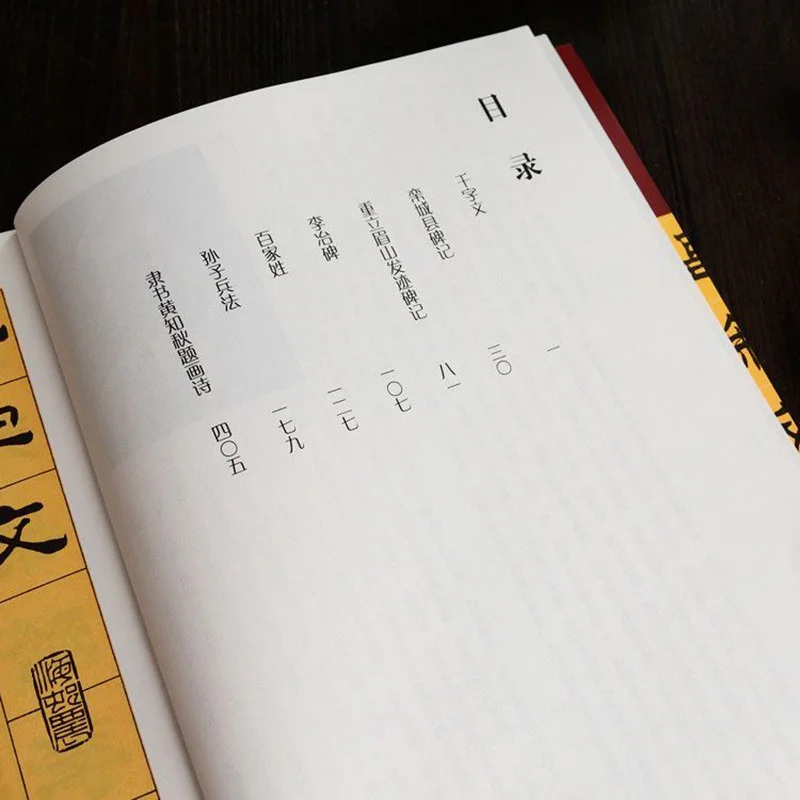 目录
千字文 一
栾城县碑记 三〇
重立眉山发迹碑记 八一
李冶碑 一〇七
百家姓 一二七
孙子兵法 一七九
隶书黄知秋题画诗 四〇五
文